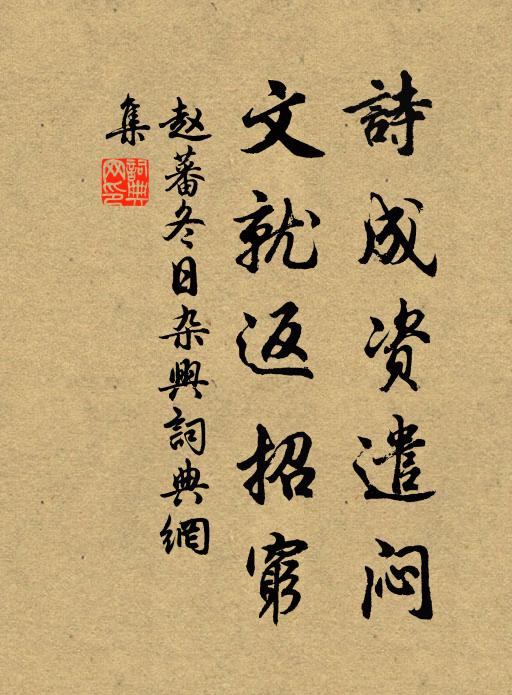 詩成资遣闷
文就返招窮
赵蕃冬日杂興詞典網
集
詞典
网印